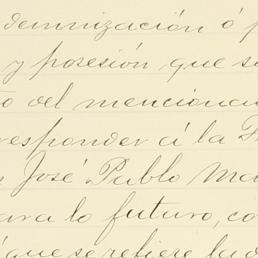 demnización ó p
y posesión que s
o del menciona
responder á la F
n José Pablo Ma
para lo futuro, co
que se refiere la d